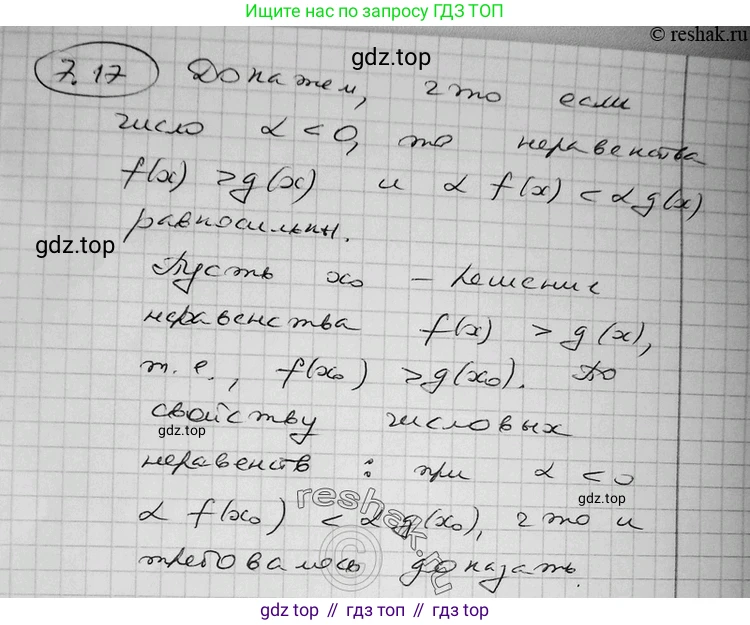 Ищите нас по запросу ГДЗ ТОП
© reshak.ru
gdz.top
7.17 Докажем, что если
число α < 0, то неравенства
f(x) > g(x) и α f(x) < α g(x)
равносильны.
gdz.top
Пусть x₀ – решение
неравенства f(x) > g(x),
т. е., f(x₀) > g(x₀). По
свойству числовых
gdz.top
неравенств : при α < 0
gdz.top
α f(x₀) < α g(x₀), что и
требовалось доказать.
reshak.ru
©
gdz.top // гдз топ // gdz top